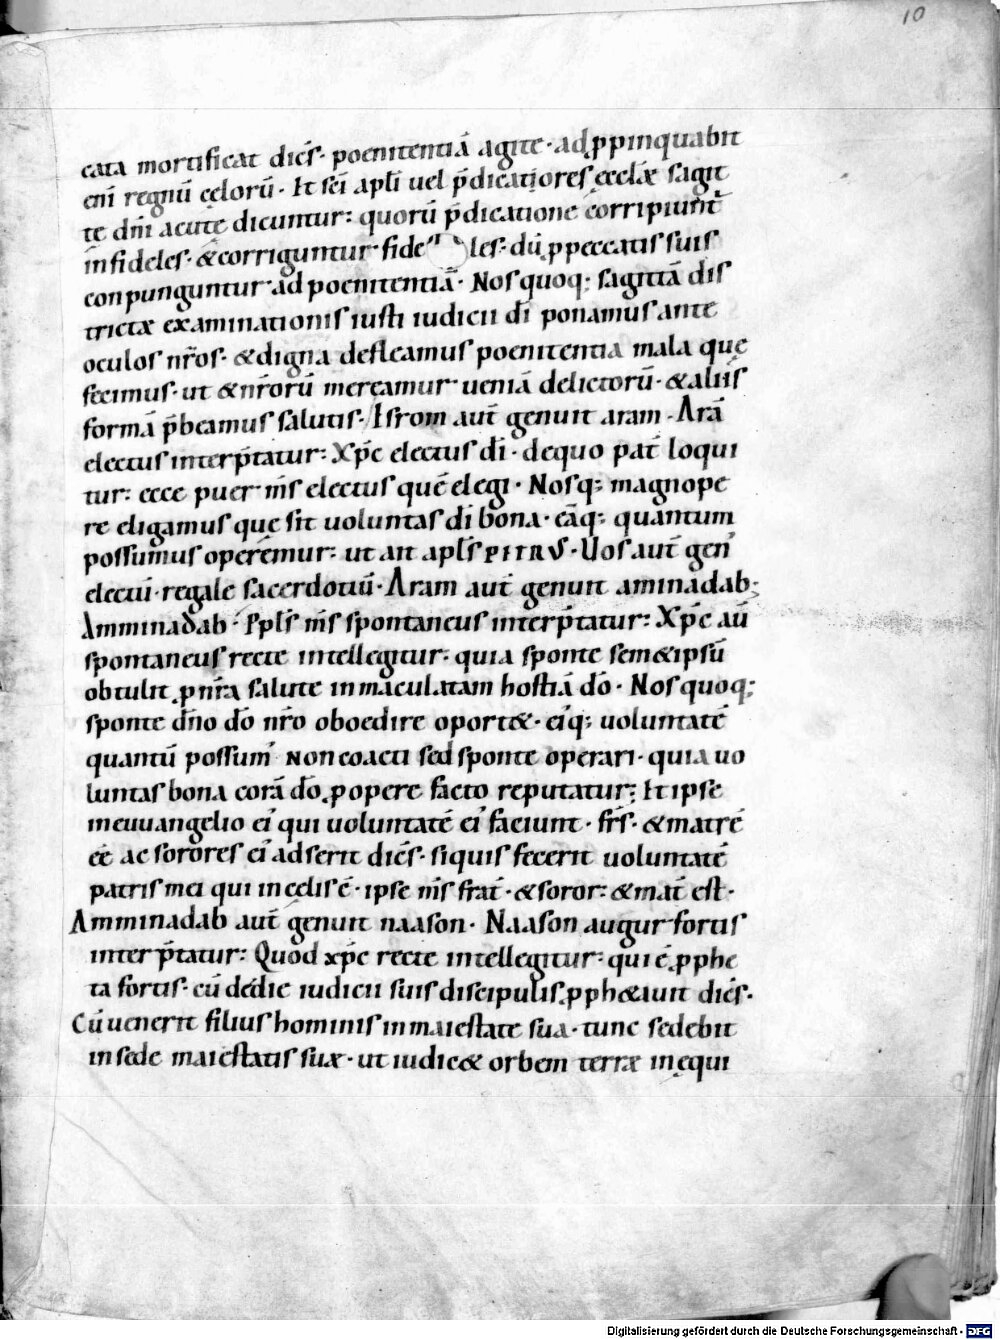 10
cata mortificat dicēs· poenitentiā agite· ad ppinquabit
eni regnū cęlorū· It sc̄i apli uel p̄dicatiores ęcclæ sagit
te dn̄i acute dicuntur: quorū p̄dicatione corripiunt̄
infideles· &corriguntur fide les· dū p peccatis suis
conpunguntur ad poenitentiā· Nos quoq; sagittā dis
trictæ examinationis iusti iudicii di ponamus ante
oculos nr̄os· &digna defleamus poenitentia mala quę
fecimus· ut &nr̄orū mereamur ueniā delictorū· &aliis
formā p̄beamus salutis· Isrom aut̄ genuit aram· Arā
electus interp̄tatur: Xp̄c electus di· dequo pat̄ loqui
tur: ecce puer m̄s electus quē elegi· Nosq; magnope
re eligamus que sit uoluntas di bona· eāq; quantum
possumus operemur: ut ait apl̄s PETRUS· Uos aut̄ gen'
electū· regale sacerdotiū· Aram aut̄ genuit aminadab;
Amminadab· Ppls m̄s spontaneus interp̄tatur: Xp̄c aū
spontaneus recte intellegitur· quia sponte sem&ipsū
obtulit p nr̄a salute inmaculatam hostiā dō· Nos quoq;
sponte dn̄o dō nr̄o oboedire oport&· ei'q; uoluntatē
quantū possum' non coacti sed sponte operari· quia uo
luntas bona corā dō p opere facto reputatur; It ipse
ineuuangelio ei' qui uoluntatē ei' faciunt· fr̄s· &matrē
eē ac sorores ei' adserit dicēs· siquis fecerit uoluntatē
patris mei qui in cęlis ē· ipse m̄s frat̄· &soror: &mat̄ est·
Amminadab aut̄ genuit naason· Naason augur fortis
interp̄tatur: Quod xp̄c recte intellegitur· qui ē pphe
ta fortis· cū dedie iudicii suis discipulis pph&auit dicēs·
Cū uenerit filius hominis in maiestate sua· tunc sedebit
in sede maiestatis suæ· ut iudic& orbem terræ in ęqui
Digitalisierung gefördert durch die Deutsche Forschungsgemeinschaft - DFG